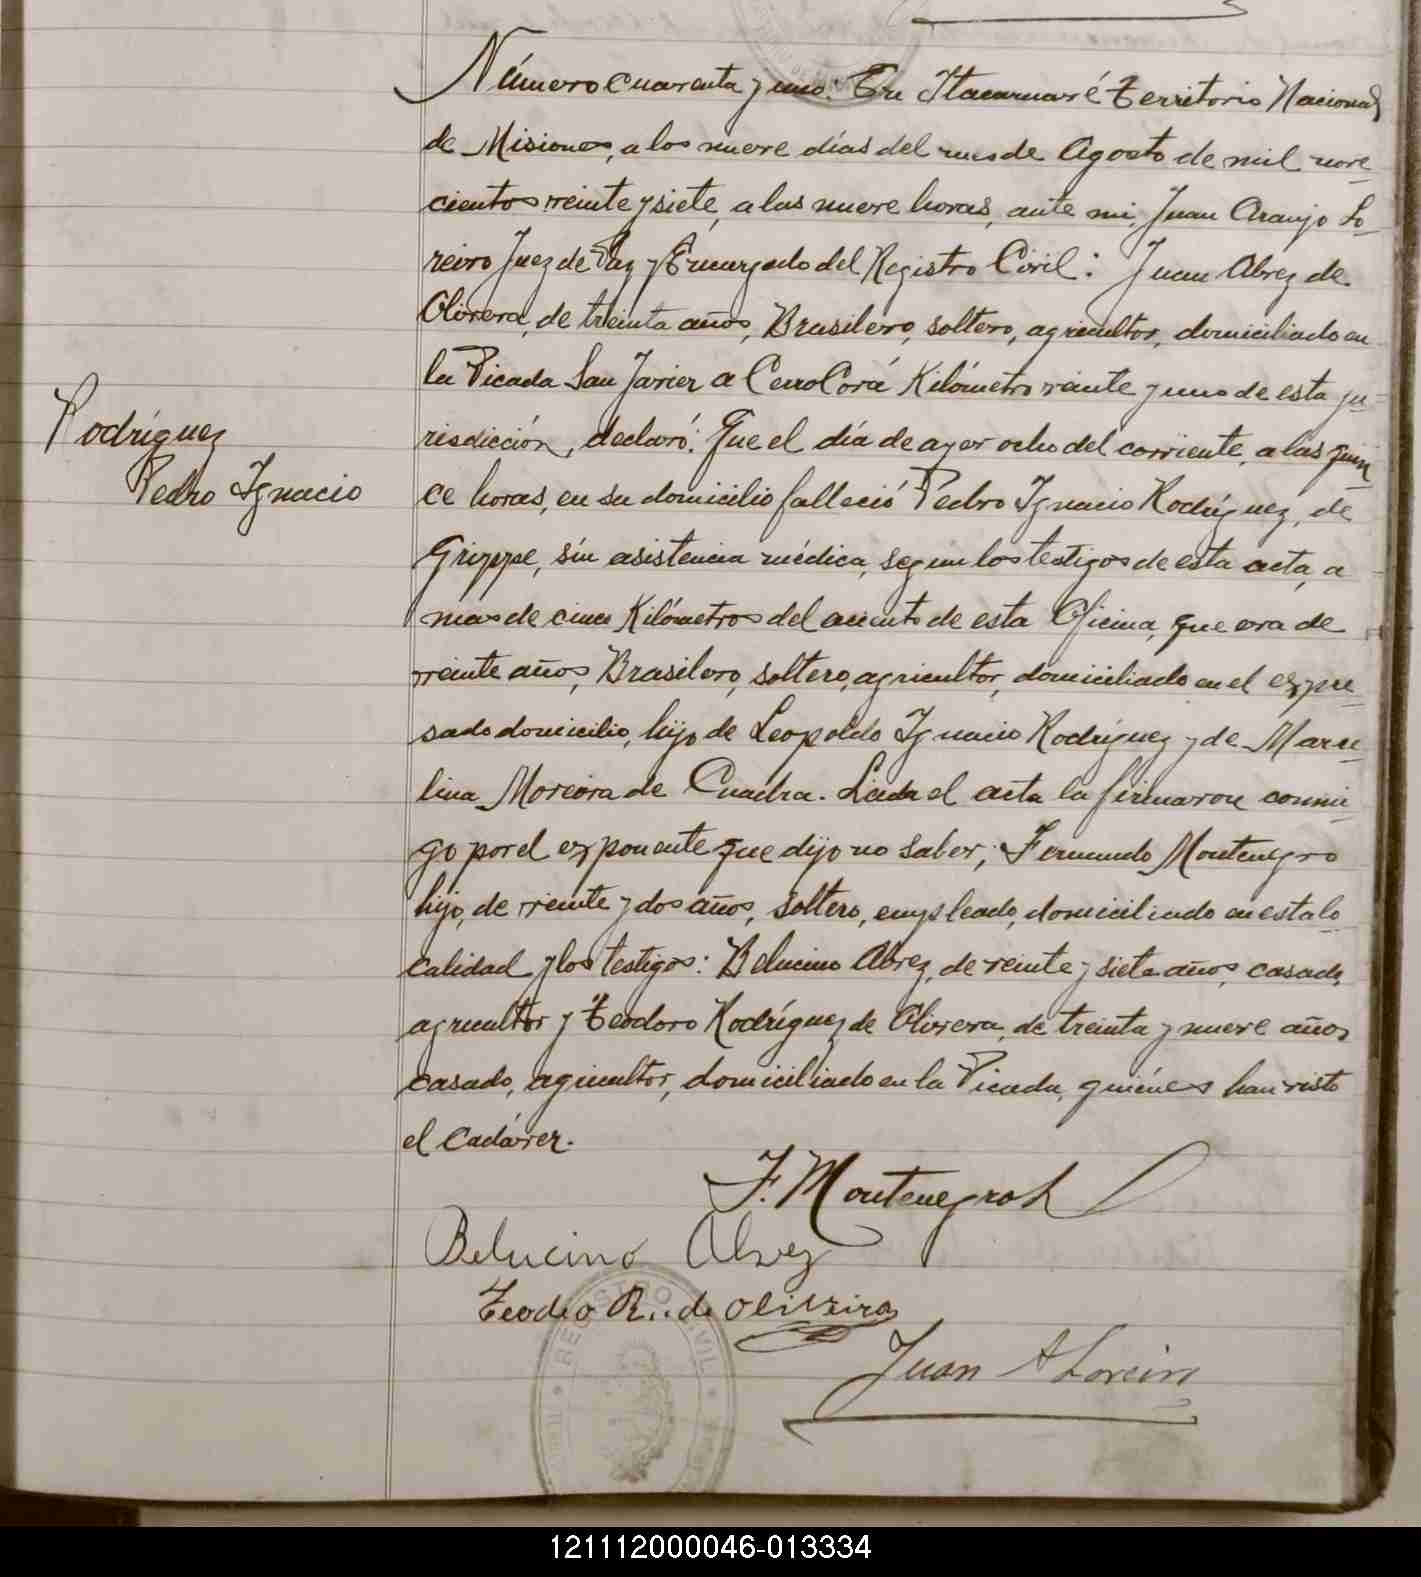 Número cuarenta y uno. En Itacaruaré Territorio Nacional
de Misiones, a los nueve días del mes de Agosto de mil nove-
cientos veinte y siete, a las nueve horas, ante mi, Juan Araujo Lo-
reiro Juez de Paz y Encargado del Registro Civil: Juan Abrez de
Olivera, de treinta años, Brasilero, soltero, agricultor, domiciliado en
la Picada San Javier a Cerro Corá Kilómetro veinte y uno de esta ju-
Rodríguez
Pedro Ignacio
risdicción, declaró: Que el día de ayer ocho del corriente, a las quin
ce horas, en su domicilio falleció Pedro Ignacio Rodríguez, de
Grippe, sín asistencia médica, segun los testigos de esta acta, a
mas de cinco Kilómetros del aciento de esta Oficina, que era de
veinte años, Brasilero, soltero, agricultor, domiciliado en el expre-
sado domicilio, hijo de Leopoldo Ignacio Rodríguez y de Marce-
lina Moreira de Cuadra. Leida el acta la firmaron conmi-
go por el exponente que dijo no saber, Fernando Montenegro
hijo, de veinte y dos años, soltero, empleado, domiciliado en esta lo
calidad y los testigos: Belucino Abrez, de veinte y siete años, casado,
agricultor y Teodoro Rodríguez de Olivera, de treinta y nueve años
casado, agricultor, domiciliado en la Picada, quiénes han visto
el cadáver.
F. Montenegro h
Belucino Alvez
Teodro R. de oliveira
Juan A Loreiro
REGISTRO CIVIL
121112000046-013334